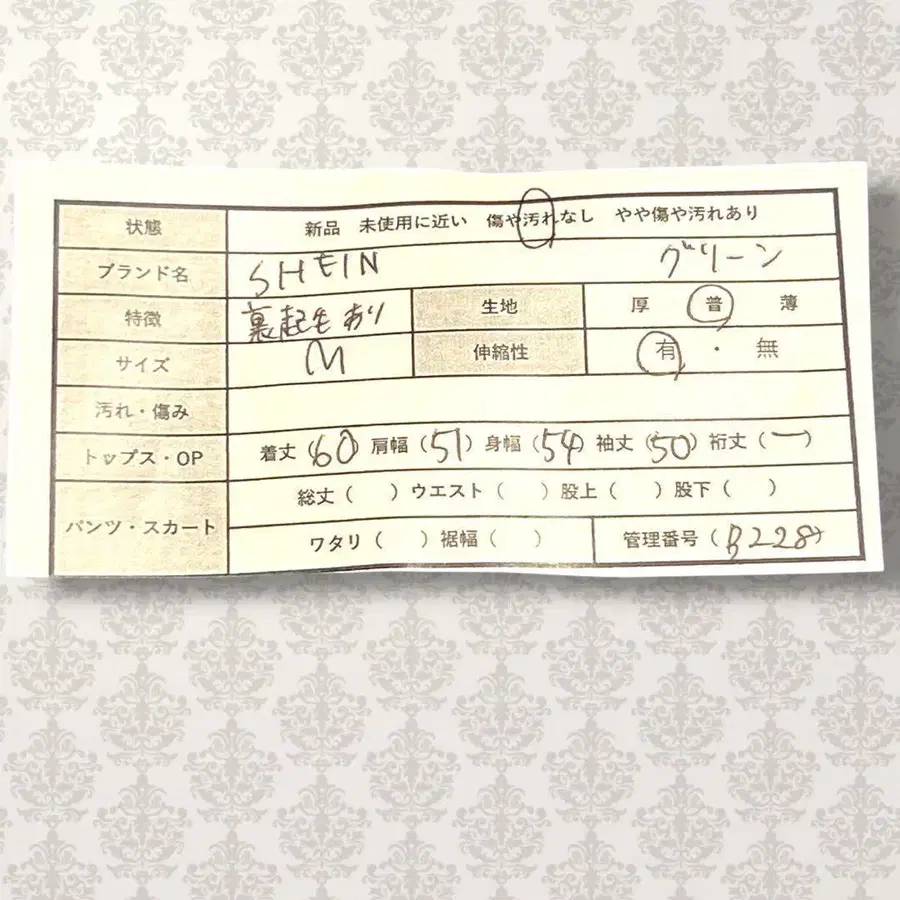 状態 新品 未使用に近い 傷や汚れなし やや傷や汚れあり
ブランド名 SHEIN グリーン
特徴 裏起毛あり 生地 厚 普 薄
サイズ M 伸縮性 有・無
汚れ・傷み
トップス・OP 着丈(60) 肩幅(51) 身幅(54) 袖丈(50) 裄丈(ー)
パンツ・スカート 総丈( ) ウエスト( ) 股上( ) 股下( )
ワタリ( ) 裾幅( ) 管理番号(B228)